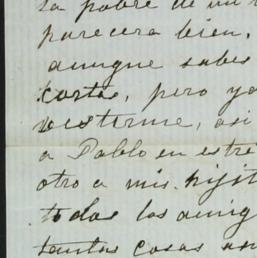 la pobre de mi
parecera bien,
aunque sabes
corta, pero yo
vestirme, asi
a Pablo en estre
otro a mis hijit
todas las amig
tantas cosas